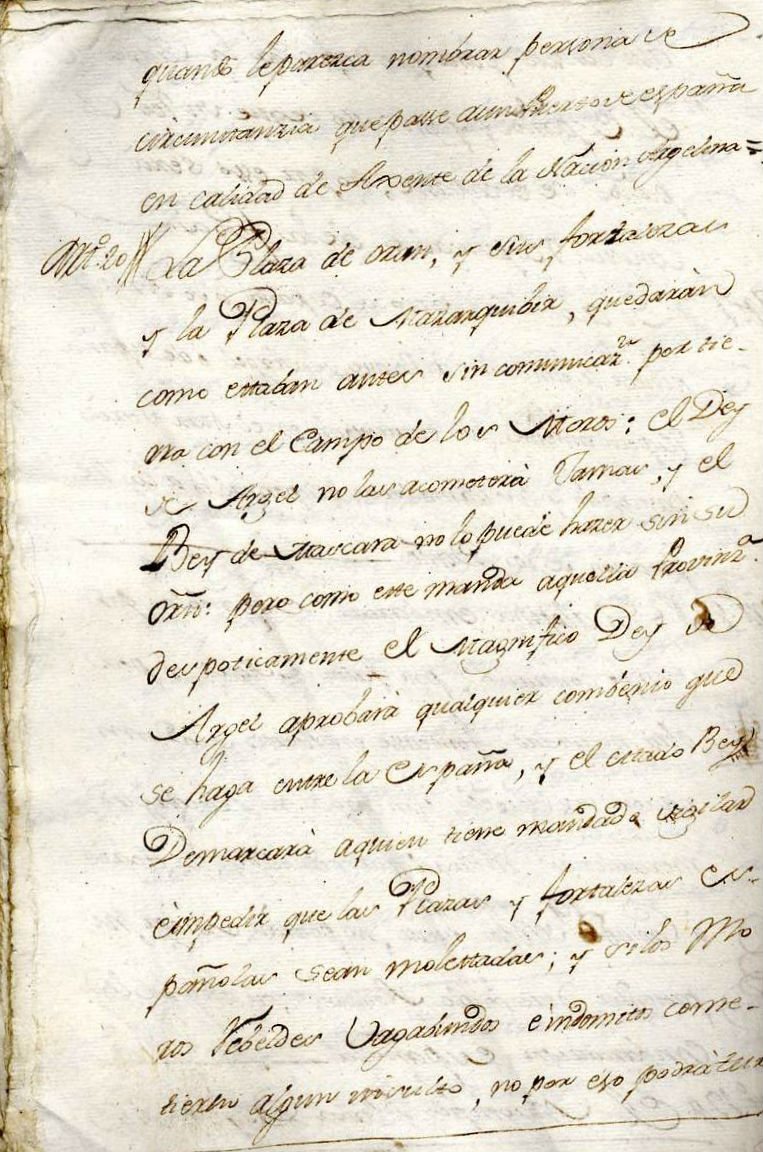 quando leparezca nombrar persona de
circunstanzia que passe aun Puerto de españa
en calidad de Axente de la Nacion Argelina=
Artº. 20 // La Plaza de oran, y sus fortalezas
y la Plaza de Mazarquibir, quedaràn
como estaban antes sin comunicazn. por tie-
rra con el Campo de los Moros: el Dey
de Argel no las acometerà Jamas, y el
Bey de Mascara no lo puede hazer sin su
orñ: pero como este manda aquella Provinza.
despoticamente el Magnifico Dey de
Argel aprobarà qualquier combenio que
se haga entre la España, y el citado Bey
Demarcarà aquien tiene mandado vigilar
èimpedir que las Plazas y fortalezas es-
pañolas sean molestadas; y si los Mo
ros Rebeldes Vagabundos è indomitos come-
tiesen algun insulto, no por eso podrà tur